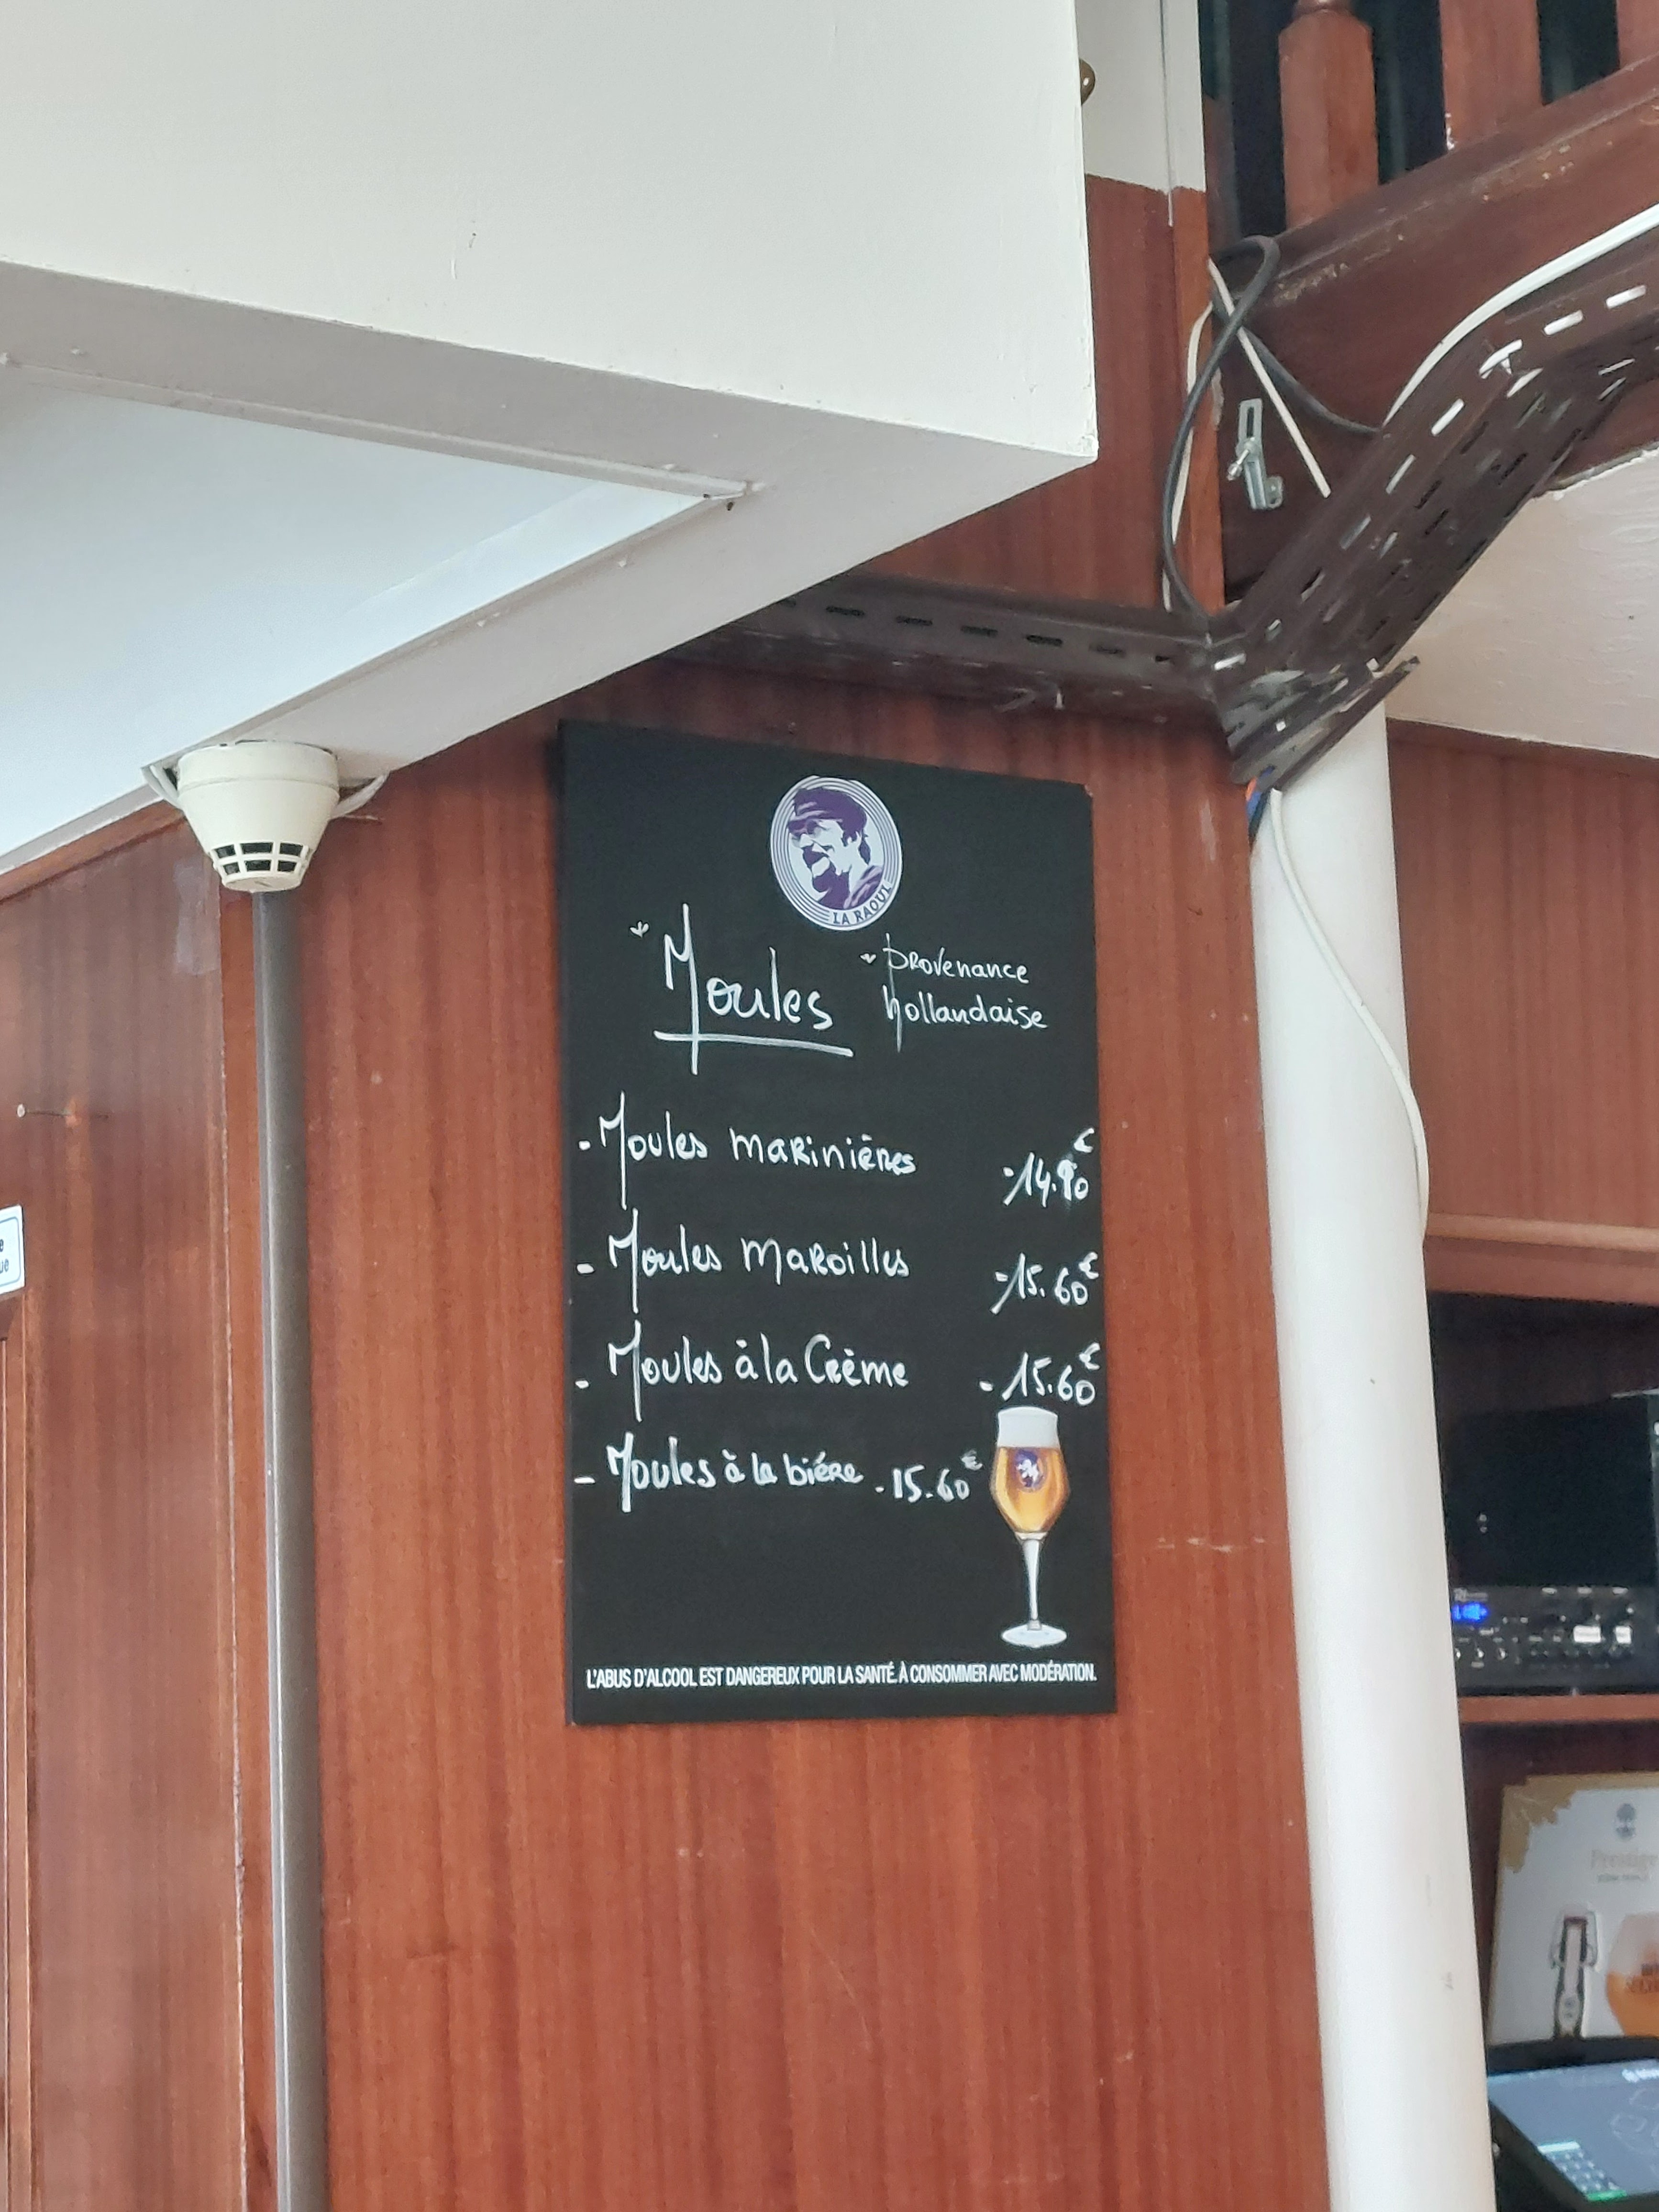 LA RAOUL
* Moules
* provenance
hollandaise
- Moules marinières - 14.90€
- Moules Maroilles - 15.60€
- Moules à la Crème - 15.60€
- Moules à la biére - 15.60€
L'ABUS D'ALCOOL EST DANGEREUX POUR LA SANTÉ. À CONSOMMER AVEC MODÉRATION.
Prestige